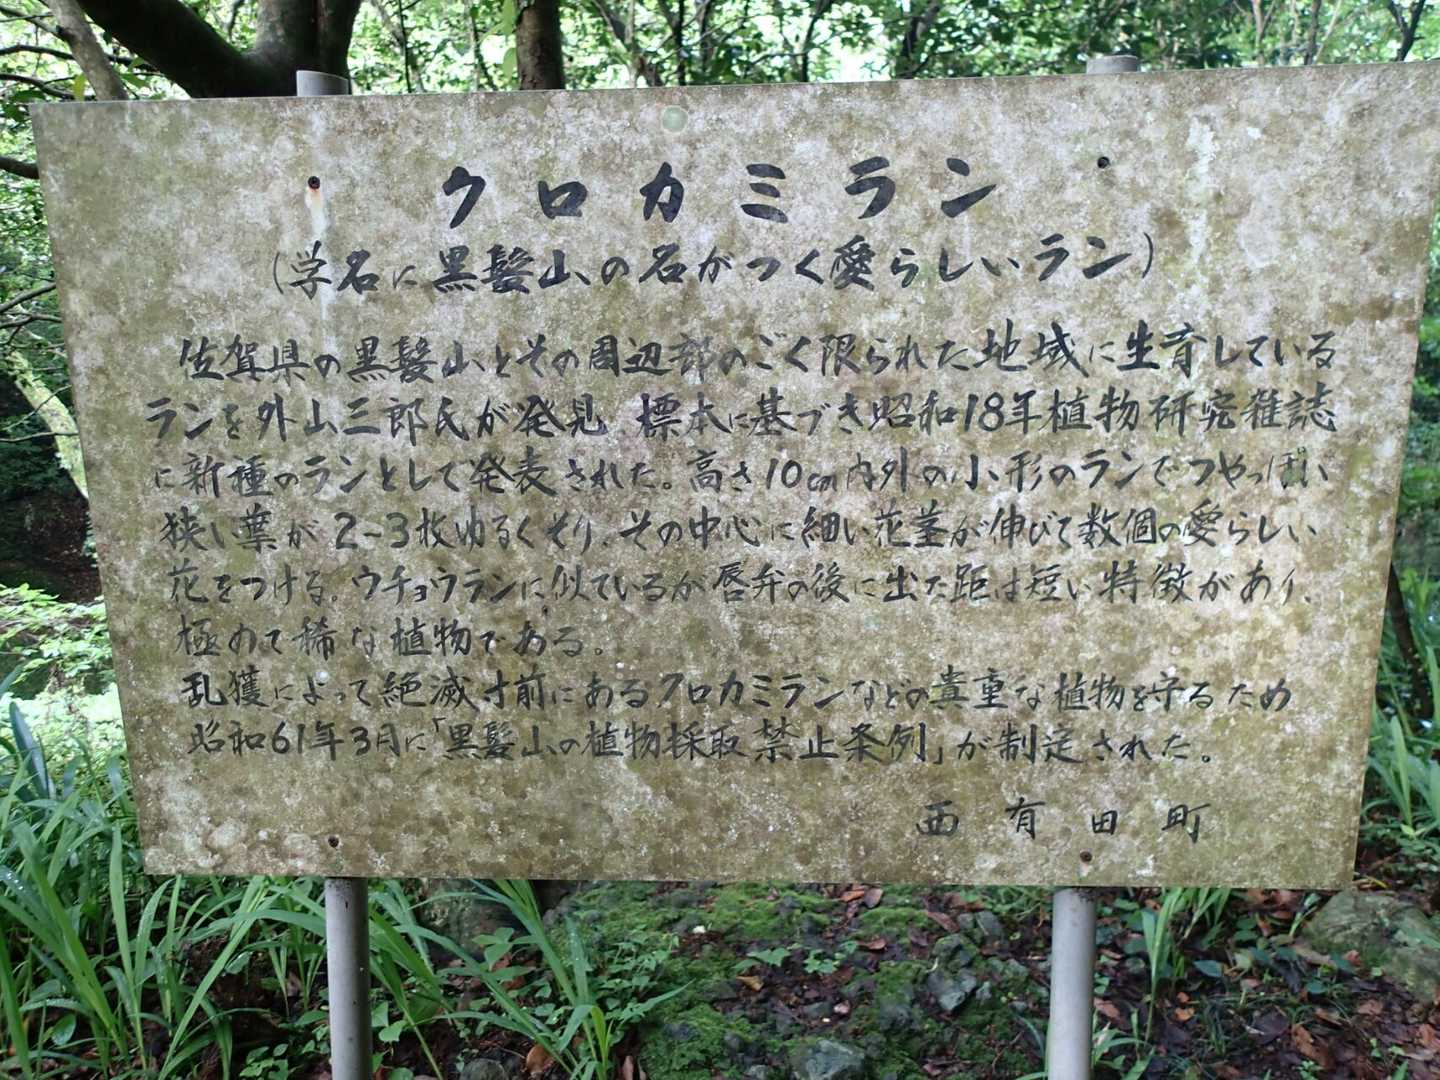 クロカミラン
(学名に黒髪山の名がつく愛らしいラン)
佐賀県の黒髪山とその周辺部のごく限られた地域に生育している
ランを外山三郎氏が発見 標本に基づき昭和18年植物研究雑誌
に新種のランとして発表された。高さ10cm内外の小形のランでつやっぽい
狭い葉が2~3枚ゆるくそり、その中心に細い花茎が伸びて数個の愛らしい
花をつける。ウチョウランに似ているが唇弁の後に出た距は短い特徴があり、
極めて稀な植物である。
乱獲によって絶滅寸前にあるクロカミランなどの貴重な植物を守るため
昭和61年3月に「黒髪山の植物採取禁止条例」が制定された。
西有田町